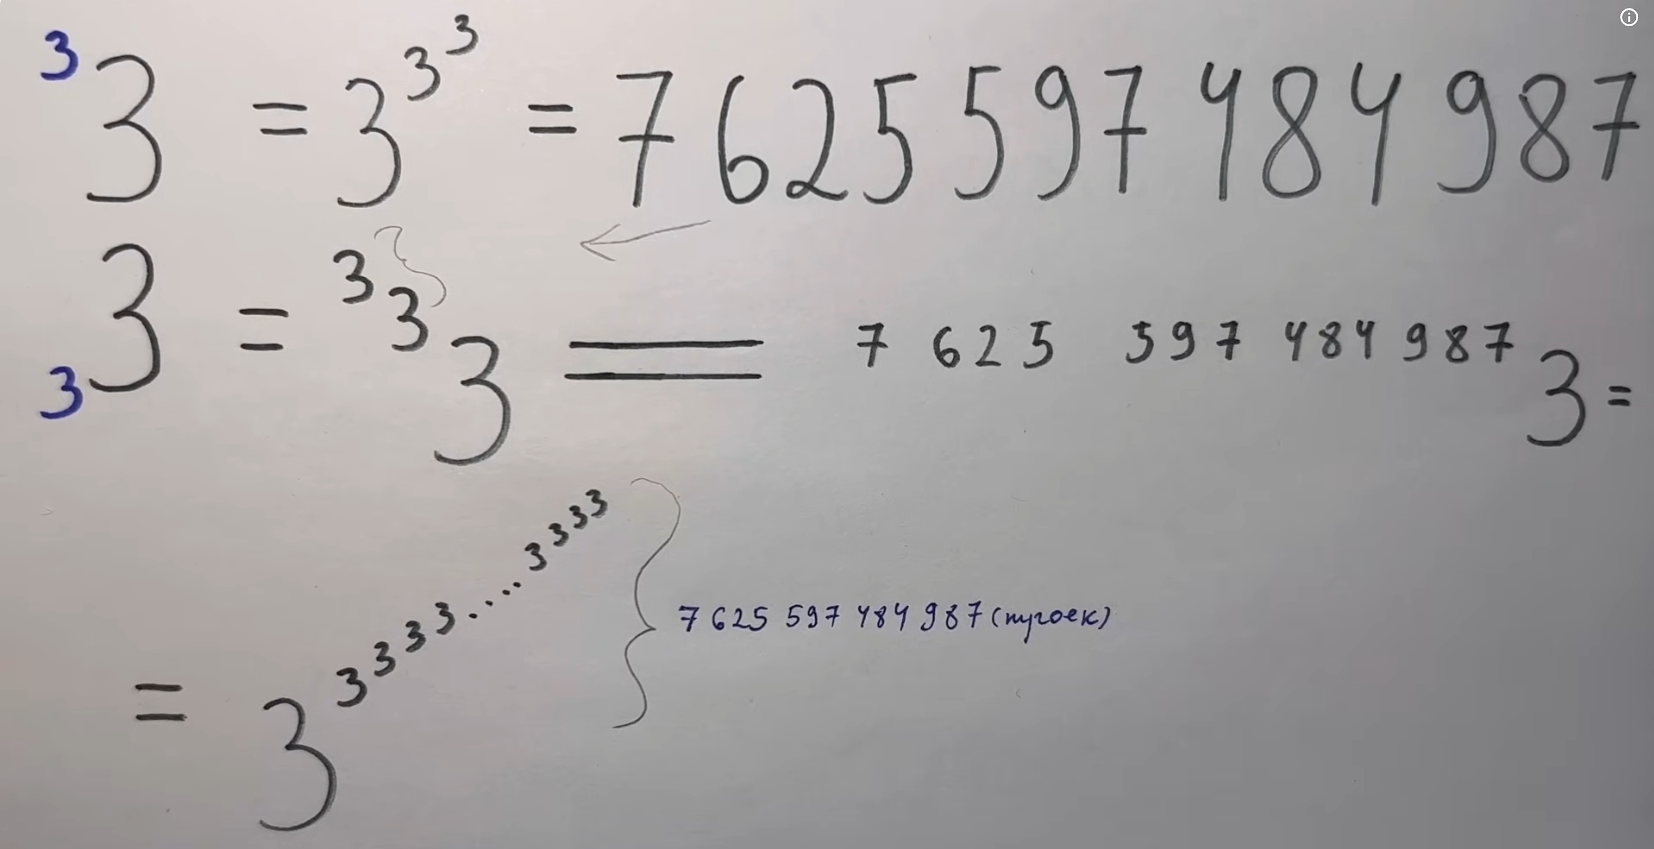 ³3 = 3^3^3 = 7 625 597 484 987
₃3 = ³3 3 = 7 625 597 484 987 3 =
= 3^3^3^3^3....3^3^3^3 } 7 625 597 484 987 (троек)